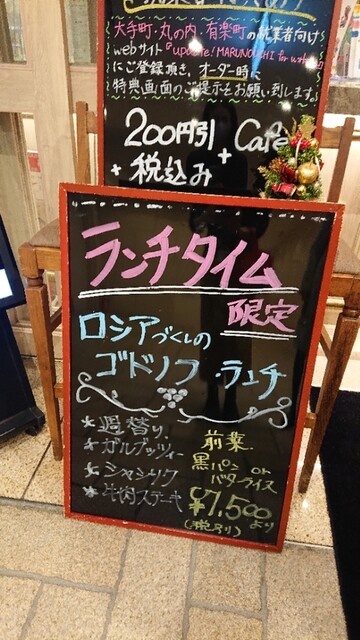 大手町・丸の内・有楽町の就業者向け
webサイト"update! MARUNOUCHI for workers"
にご登録頂き、オーダー時に
特典画面のご提示をお願い致します。
200円引 + Cafe
+ 税込み
ランチタイム
限定
ロシアづくしの
ゴドノフ・ランチ
★ 週替り、
★ ガルブッツィー
★ シャシリク
★ 牛肉ステーキ
前菜、
黒パン or
バターライス
¥7,500
(税別) より